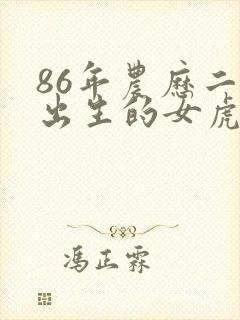 86年農歷二
出生的女虎
馮正霖